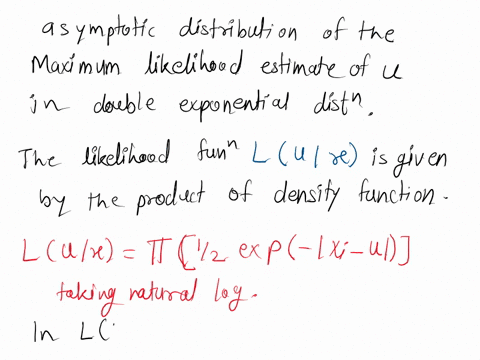 asymptotic distribution of the
Maximum likelihood estimate of u
in double exponential distⁿ.
The likelihood funⁿ L(u/x) is given
by the product of density function.
L(u/x) = π [1/2 exp(-|xi-u|)]
taking natural log.
ln L(